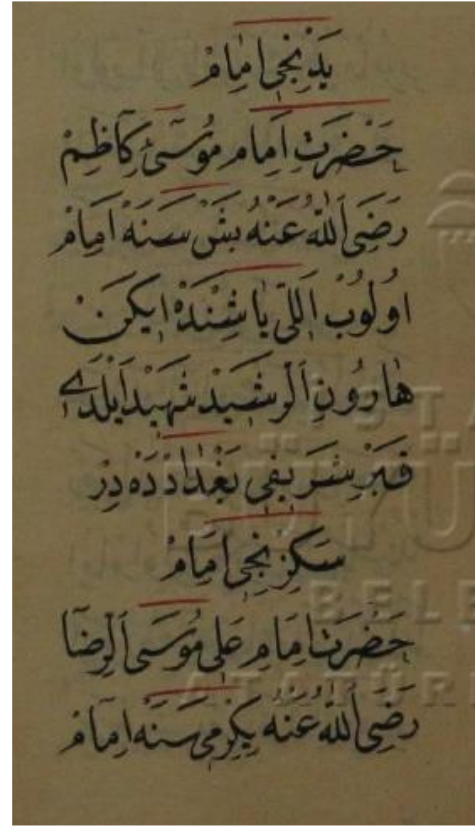 يَدِنْجِي اِمَامْ
حَضْرَتِ اِمَام مُوسَىٔ كَاظِمْ
رَضِيَ اللهُ عَنْهُ بَشْ سَنَهْ اِمَامْ
اُولُوبْ اَللّٖي يَاشِنْدَهْ اِيكَنْ
هَارُونِ اَلرَّشِيدْ شَهِيدْ اَيْلَدِي
قَبْرِ شَرِيفِي بَغْدَادْدَهْ دِرْ
سَكِزِنْجِي اِمَامْ
حَضْرَتِ اِمَامِ عَلِي مُوسَى اَلرِّضَا
رَضِيَ اللهُ عَنْهُ يِكِرْمِي سَنَهْ اِمَامْ